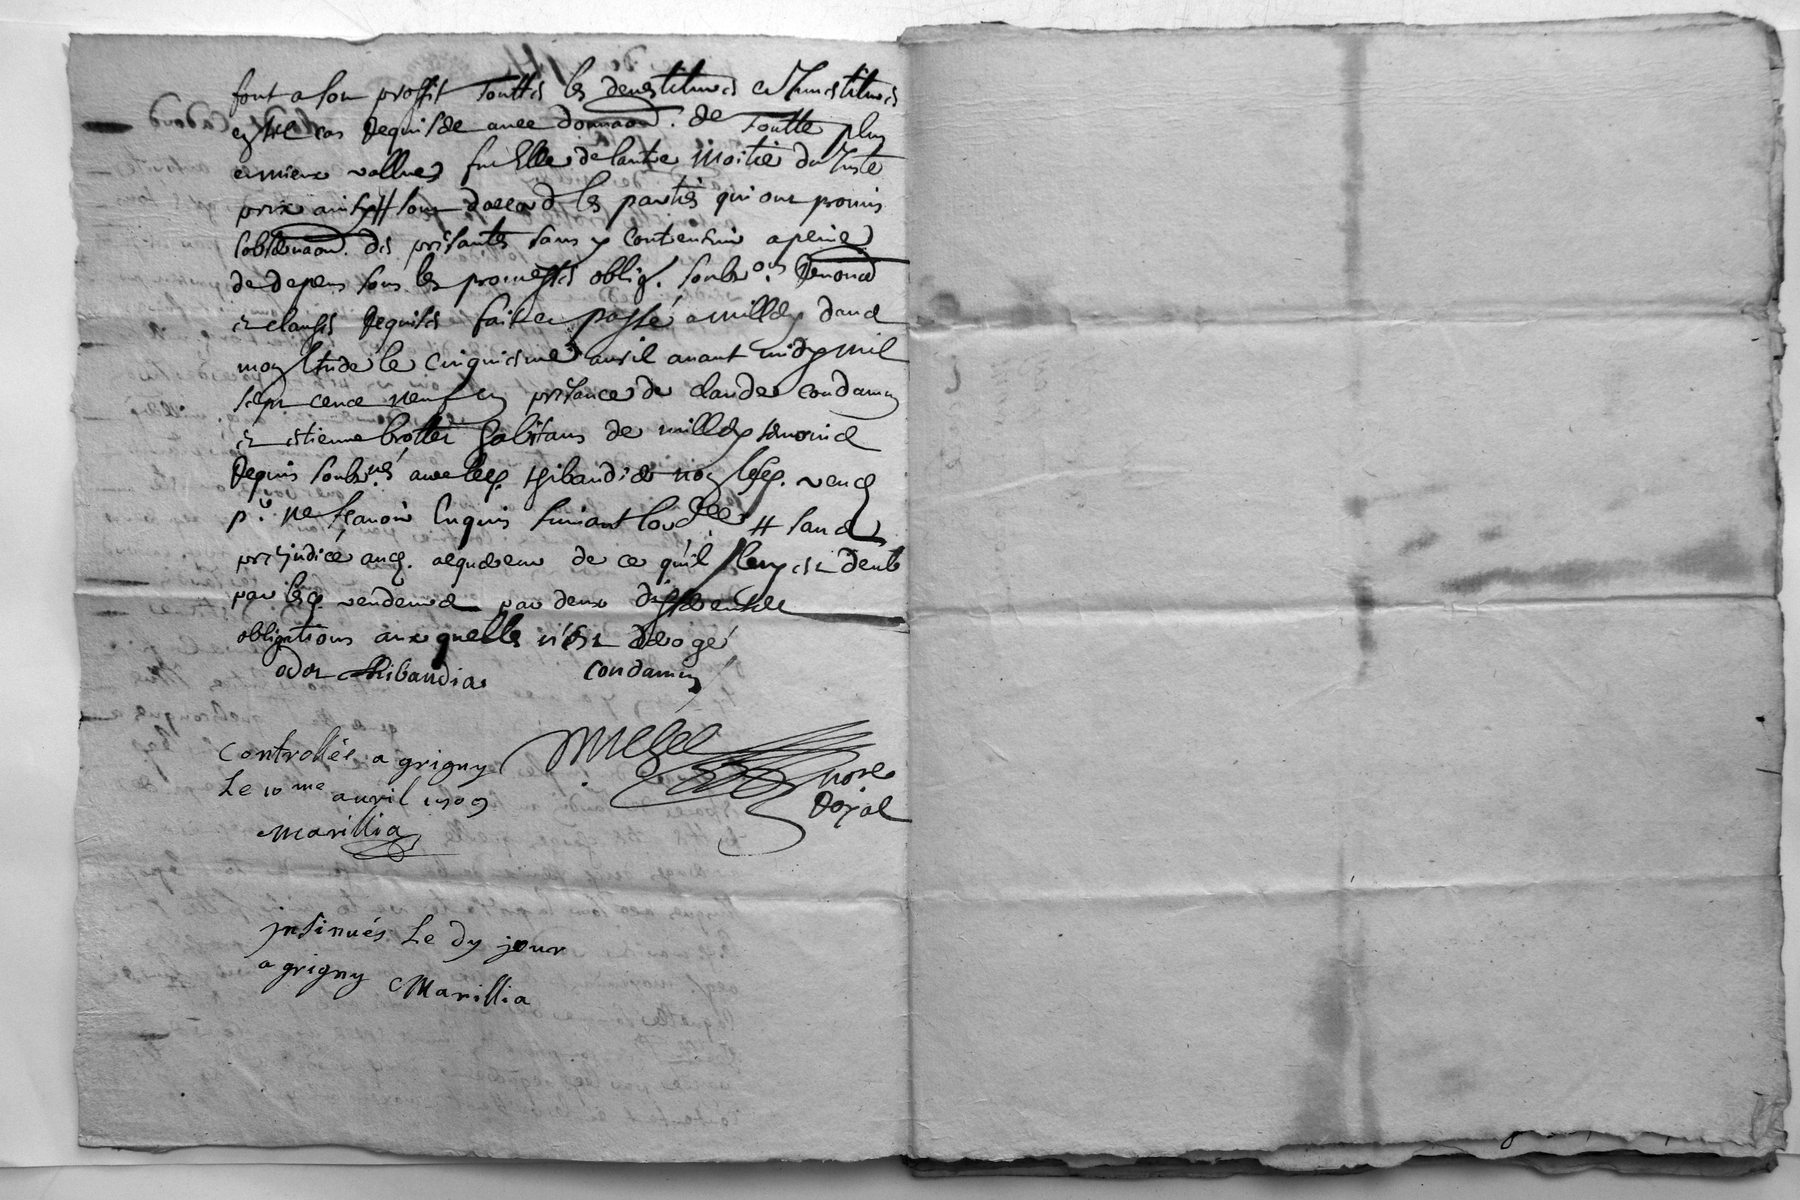 font a son proffit touttes les devestitures et Jnvestitures
en tel cas Requise avec donnaon. de toutte plus
et mieux vallues fusse elle de lautre moitié du Juste
prix ainsy # sont daccord les parties qui ont promis
lobservaon. des presantes sans y contrevenir a peine
de depens sous les promesses oblig. soubs.ons Renonces
et clauses Requises fait et passé a millery dans
mon Etude le cinquiesme avril avant midy mil
sept cent neuf en presance de claude condamin
et estienne brottet habitans de millery temoins
Requis soubs.nés avec led. thibaudier non lesd. vend
p.r ne scavoir Enquis suivant lord.ce # sans
prejudice aud. acquereur de ce qu'il luy est deub
par lesd. vendeurs par deux differentes
obligations auxquelles n'est derogé
odet thibaudier condamin
controllés a grigny
Le 10me avril 1709
Marillia
nore
Royal
jnsinués Le dy jour
a grigny Marillia